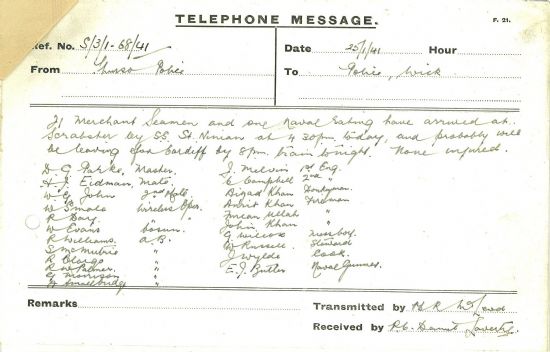 TELEPHONE MESSAGE.
F. 21.
Ref. No. S/3/1-68/41
Date 25/1/41 Hour
From Thurso Police
To Police, Wick
21 Merchant Seamen and one Naval Rating have arrived at
Scrabster by SS. St. Ninian at 4.30pm today, and probably will
be leaving for Cardiff by 8pm train tonight. None injured.
D G Parke, Master.
H J Eidman, Mate.
W E John 2nd Mate
W Smale Wireless Oper.
R Dary "
W Evans bosun.
R Williams. A.B.
S McMutrie "
R "
R W Palmer. "
G Morrison "
W Smallbridge "
J. Melvin 1st Eng.
E Campbell 2nd "
Khan Donkeyman.
Khan Fireman
Ullah "
John Khan "
G Wilcox Messboy.
W Russell. Steward
J Wylde Cook.
E.J. Butler Naval Gunner.
Remarks
Transmitted by
Received by P.C.